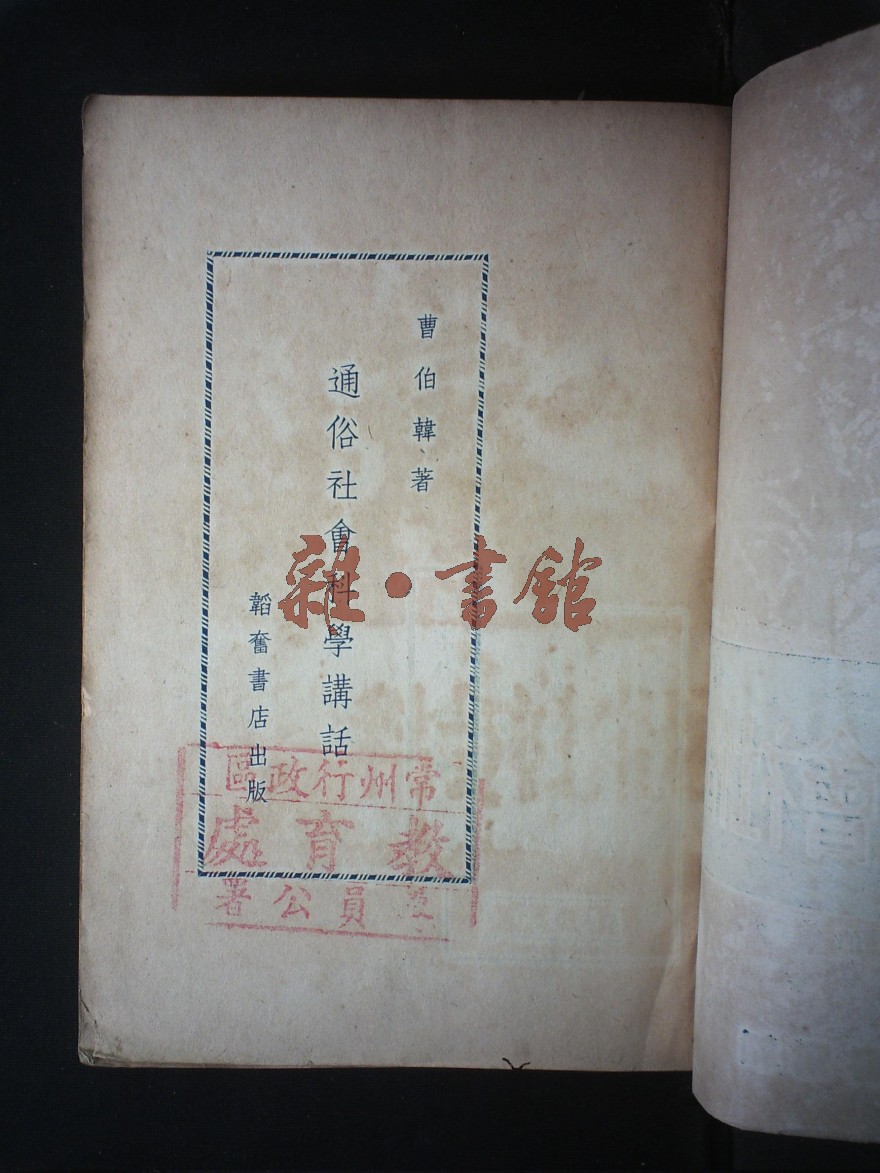 曹伯韓著
通俗社會科學講話
韜奮書店出版
雜·書館
常州行政區
教育處
員公署